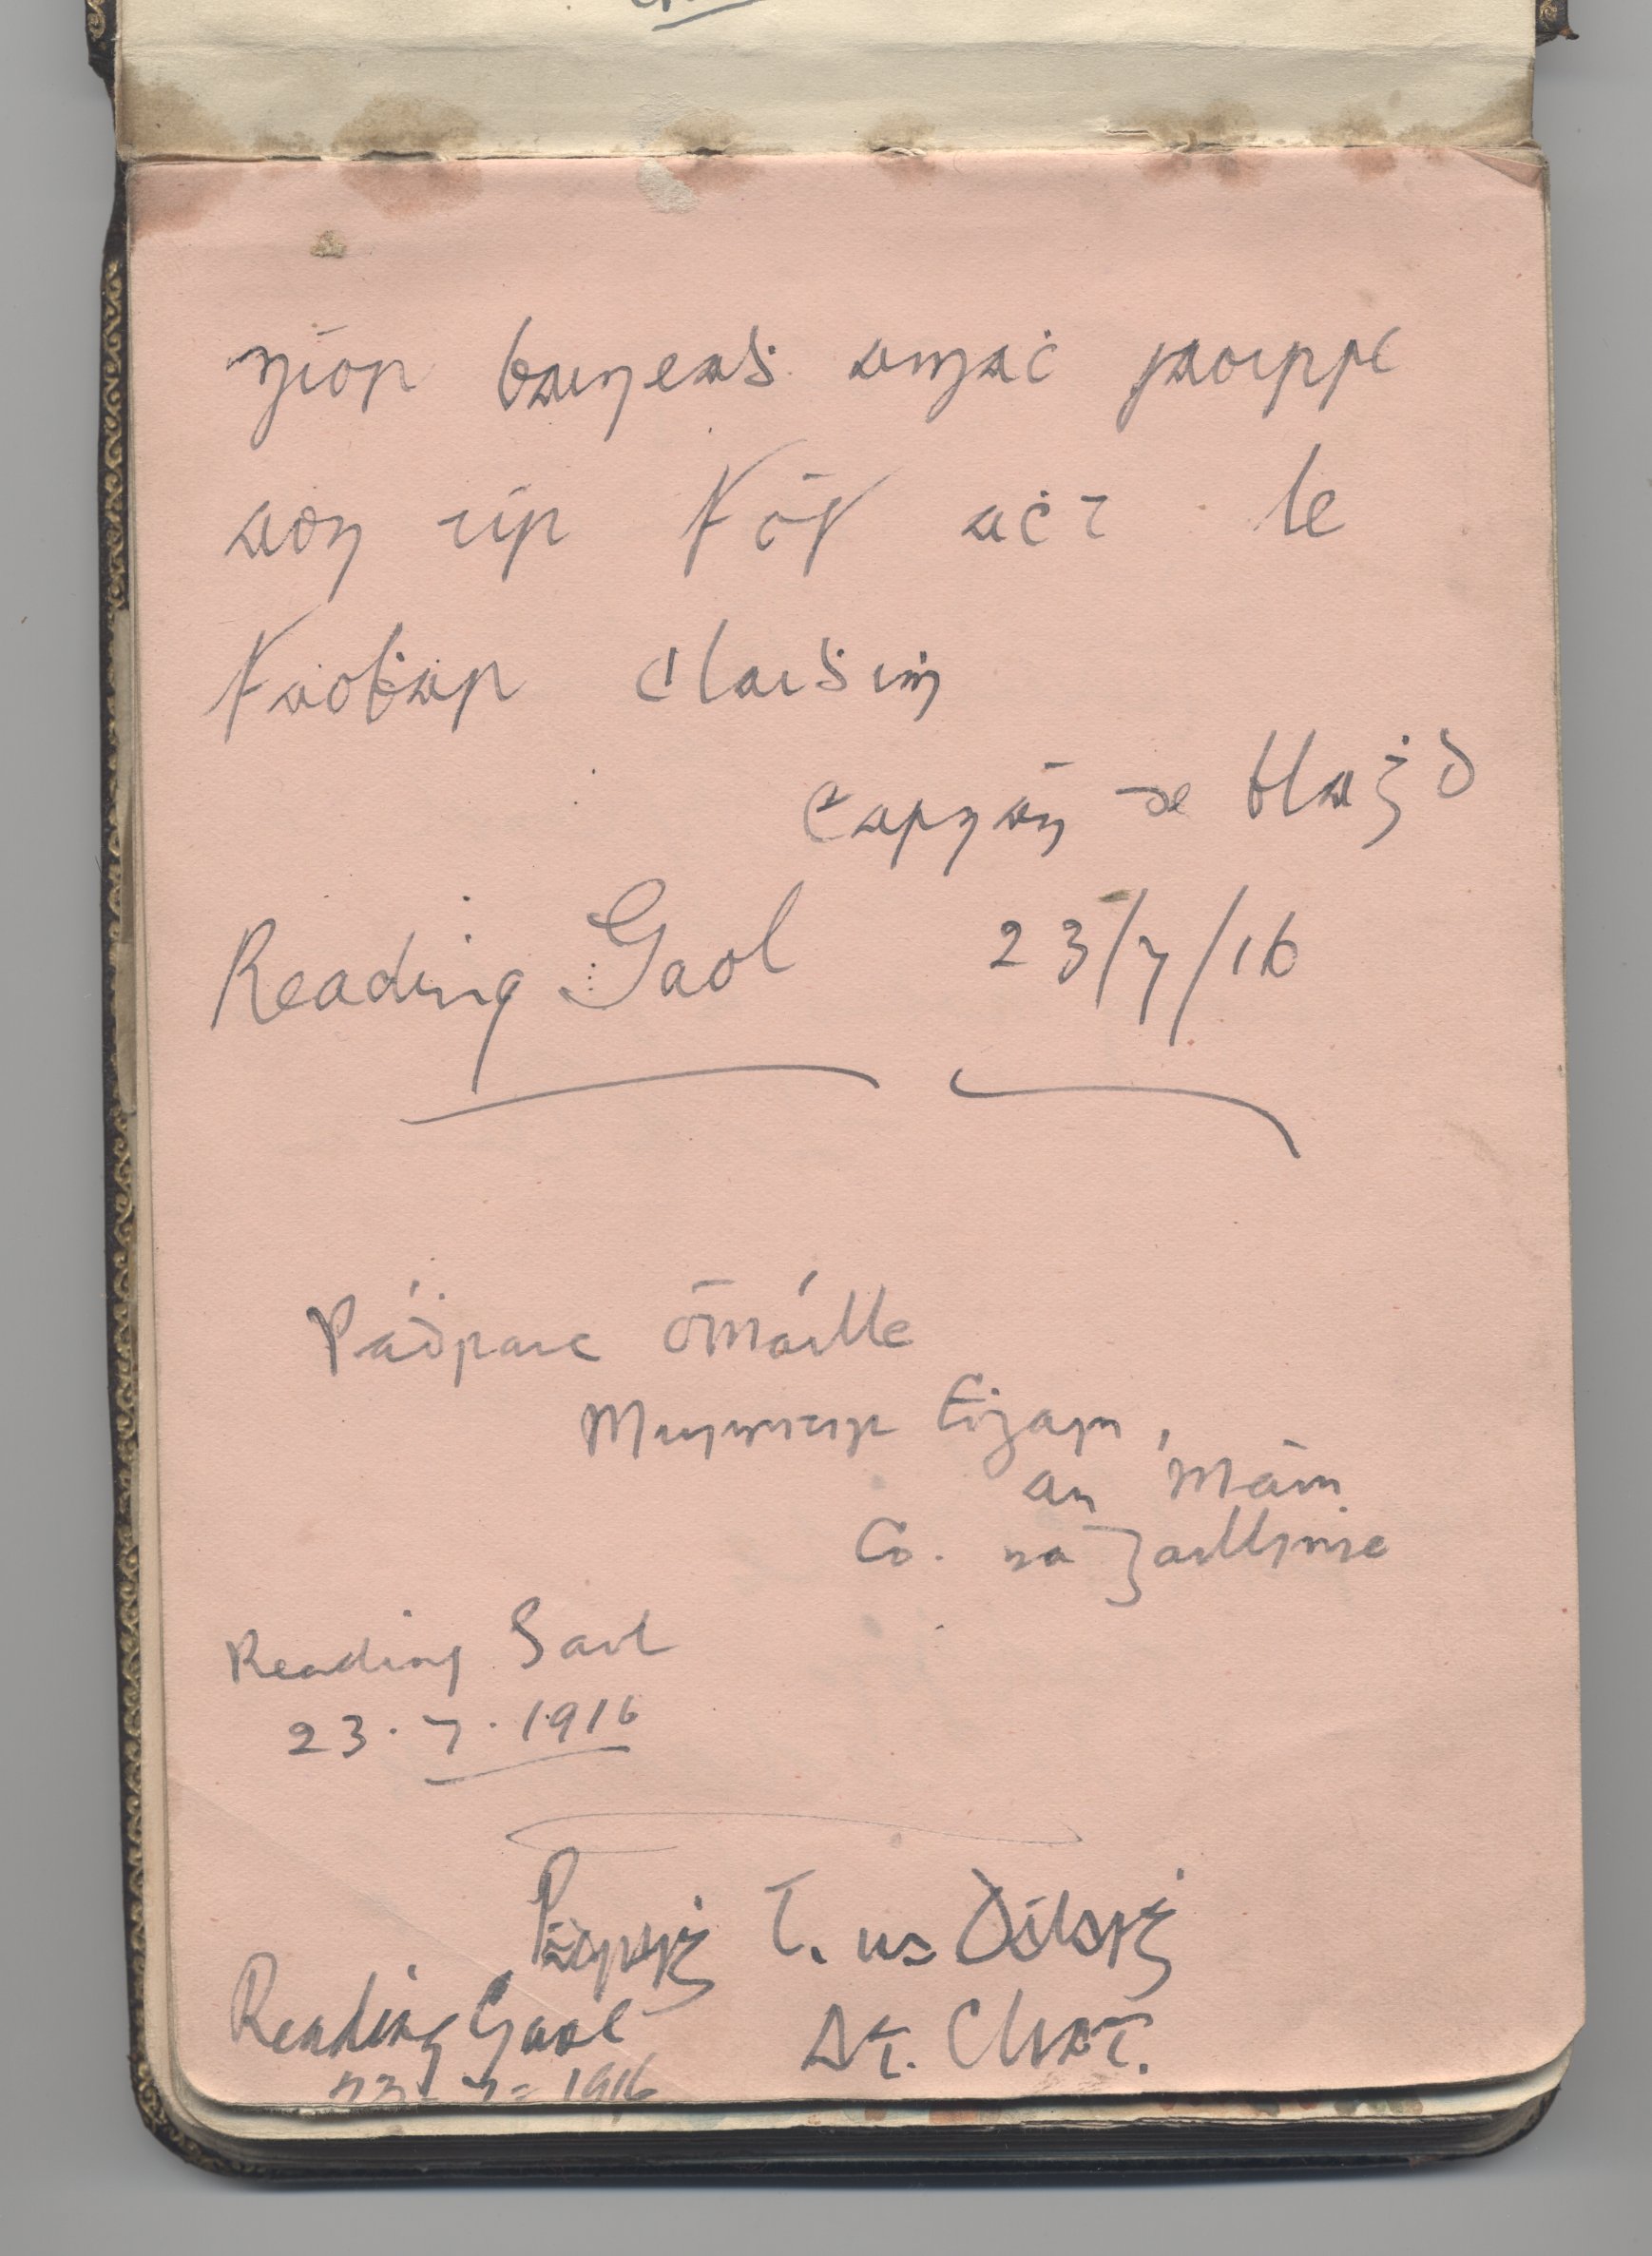 níor baineaḋ amaċ saoirse
aon tír fós aċt le
faoḃar claiḋiṁ
Earnán de Blaġd
Reading Gaol 23/7/16
Pádraic Ó Máille
Muinntir Eoġain,
an Mám
Co. na Gaillimhe
Reading Gaol
23.7.1916
T. ua
Reading Gaol
Át. Cliat.
23-7-1916